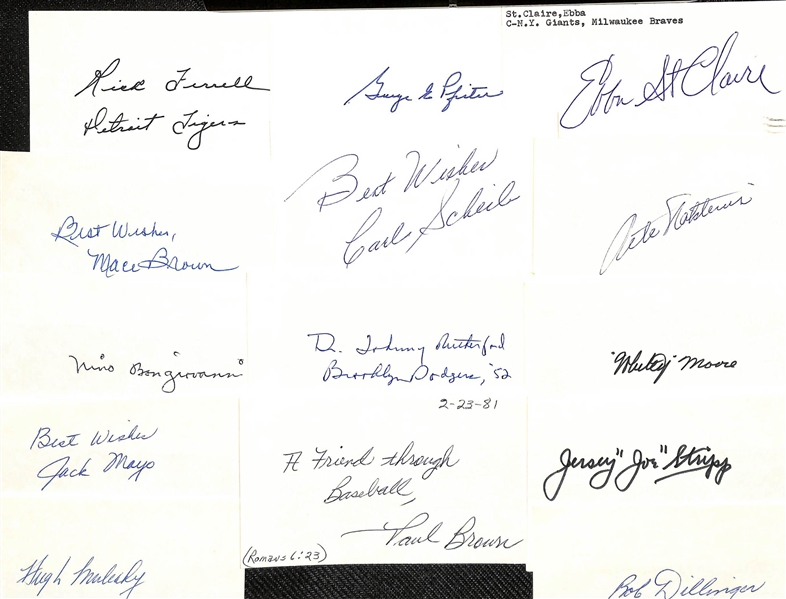 St.Claire,Ebba
C-N.Y. Giants, Milwaukee Braves
Rick Ferrell
Detroit Tigers
George E Pfister
Ebba St Claire
Best Wishes
Carl Scheib
Best Wishes,
Mace Brown
Pete
Nino Bongiovanni
Dr. Johnny Rutherford
Brooklyn Dodgers, '52
2-23-81
"Whitey" Moore
Best Wishes
Jack Mayo
A Friend through
Baseball,
Paul Brown
(Romans 6:23)
"Jersey" "Joe" Stripp
Hugh Mulcahy
Bob Dillinger